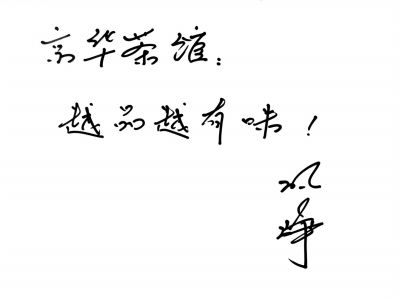 京华茶馆：
越品越有味！